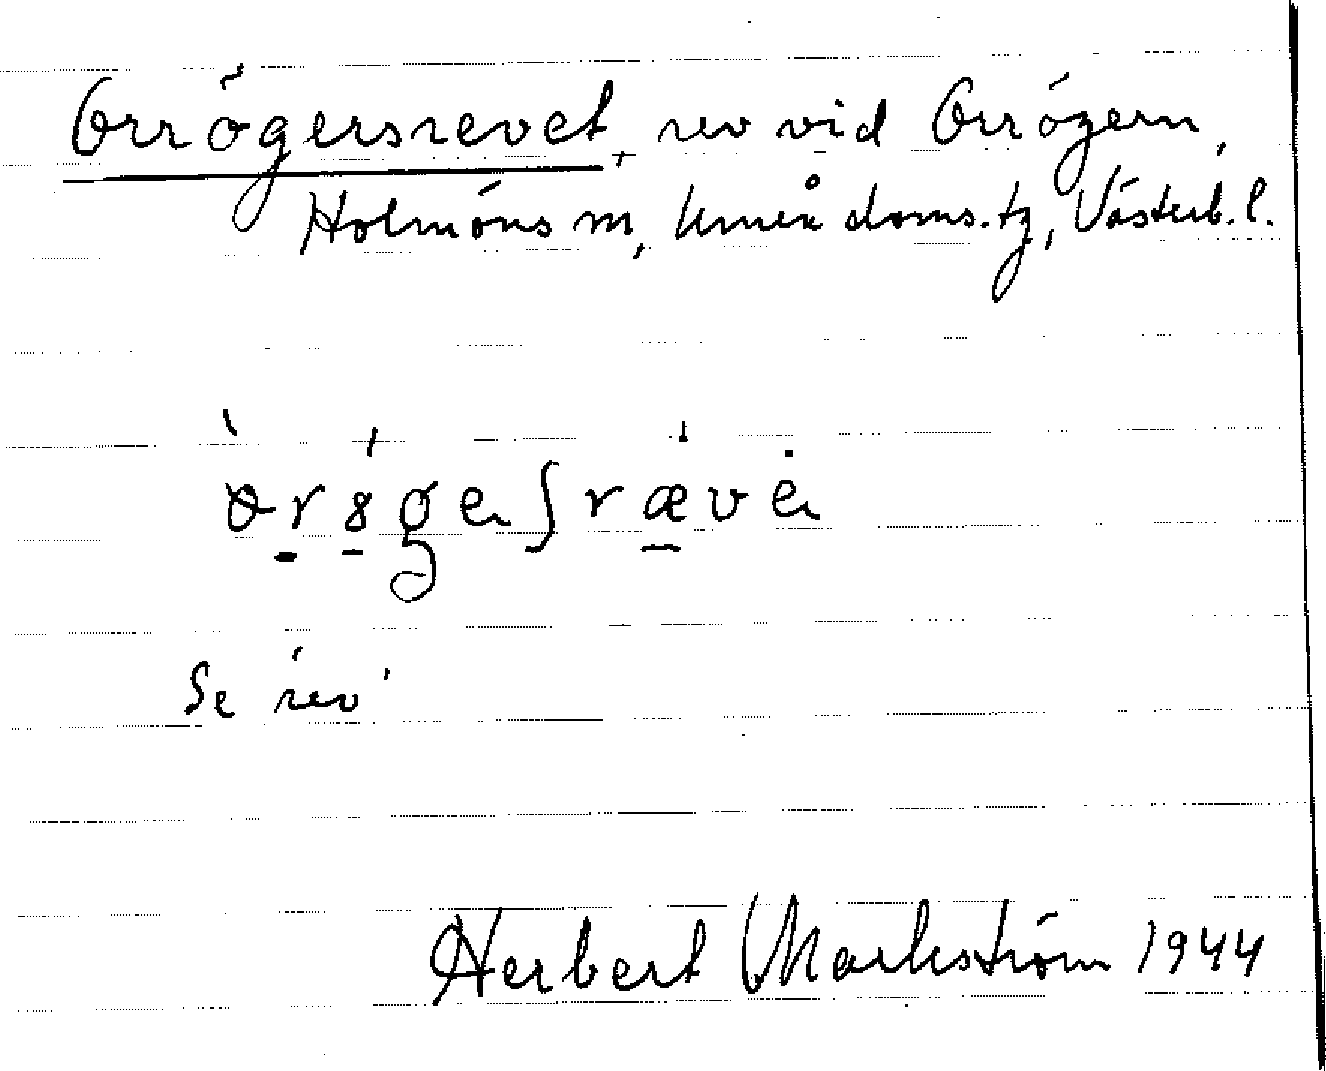 Orrögersrevet, rev vid Orrögern,
Holmöns sn, Umeå doms. tg, Västerb. l.
Se rev
Herbert Markström 1944